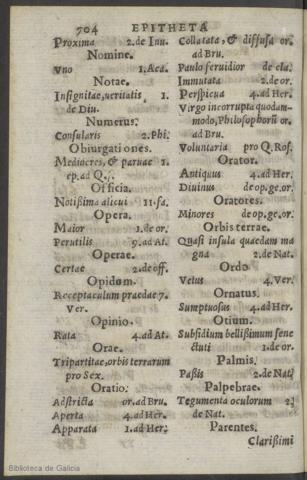 704 EPITHETA
Proxima 2.de Inu.
Nomine.
Vno 1.Aca.
Notae.
Insignitae,ueritatis 1.
de Diu.
Numerus.
Consularis 2.Phi.
Obiurgationes.
Mediocres, & paruae 1.
ep.ad Q.f.
Officia.
Notißima alicui 11.fa.
Opera.
Maior 1.de or.
Perutilis 9.ad At.
Operae.
Certae 2.de off.
Opidum.
Receptaculum praedae 7.
Ver.
Opinio.
Rata 4.ad At.
Orae.
Tripartitae,orbis terrarum
pro Sex.
Oratio.
Adstricta or.ad Bru.
Aperta 4.ad Her.
Apparata 1.ad Her.
Collatata, & diffusa or.
ad Bru.
Paulo feruidior de cla.
Immutata 2.de or.
Perspicua 4.ad Her.
Virgo incorrupta quodam-
modo, Philosophorũ or.
ad Bru.
Voluntaria pro Q. Ros.
Orator.
Antiquus 4.ad Her.
Diuinus de op.ge.or.
Oratores.
Minores de op.ge.or.
Orbis terrae.
Quasi insula quaedam ma
gna 2.de Nat.
Ordo
Vetus 4. Ver.
Ornatus.
Sumptuosus 4.ad Her.
Otium.
Subsidium bellißimum sene
ctuti 1.de or.
Palmis.
Paßis 2.de Nat.
Palpebrae.
Tegumenta oculorum 2.
de Nat.
Parentes.
Clarißimi
Biblioteca de Galicia